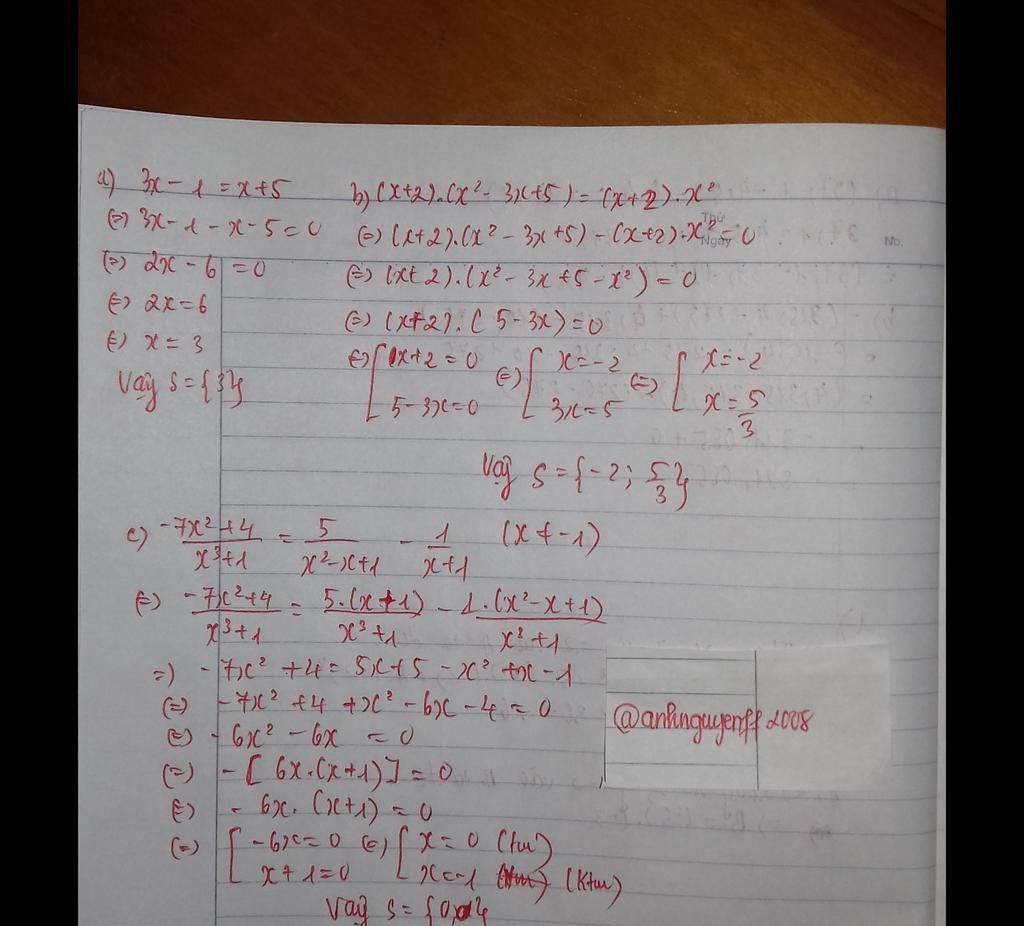 a) 3x - 1 = x + 5
(=) 3x - 1 - x - 5 = 0
(=) 2x - 6 = 0
(=) 2x = 6
(=) x = 3
Vậy S = {3}
b) (x+2).(x² - 3x + 5) = (x+2).x²
Thứ
Ngày
No.
(=) (x+2).(x² - 3x + 5) - (x+2).x² = 0
(=) (x+2).(x² - 3x + 5 - x²) = 0
(=) (x+2).(5 - 3x) = 0
(=) [ x+2 = 0 (=) [ x = -2 (=) [ x = -2
5 - 3x = 0 3x = 5 x = 5/3
Vậy S = {-2; 5/3}
c) (-7x² + 4)/(x³+1) = 5/(x² - x + 1) - 1/(x+1) (x ≠ -1)
(=) (-7x² + 4)/(x³+1) = 5.(x+1)/(x³+1) - 1.(x² - x + 1)/(x³+1)
=) -7x² + 4 = 5x + 5 - x² + x - 1
(=) -7x² + 4 + x² - 6x - 4 = 0
(=) -6x² - 6x = 0
(=) -[6x.(x+1)] = 0
(=) -6x.(x+1) = 0
(=) [ -6x = 0 (=) [ x = 0 (tm)
x + 1 = 0 x = -1 (Ktm)
@anhnguyenff2008